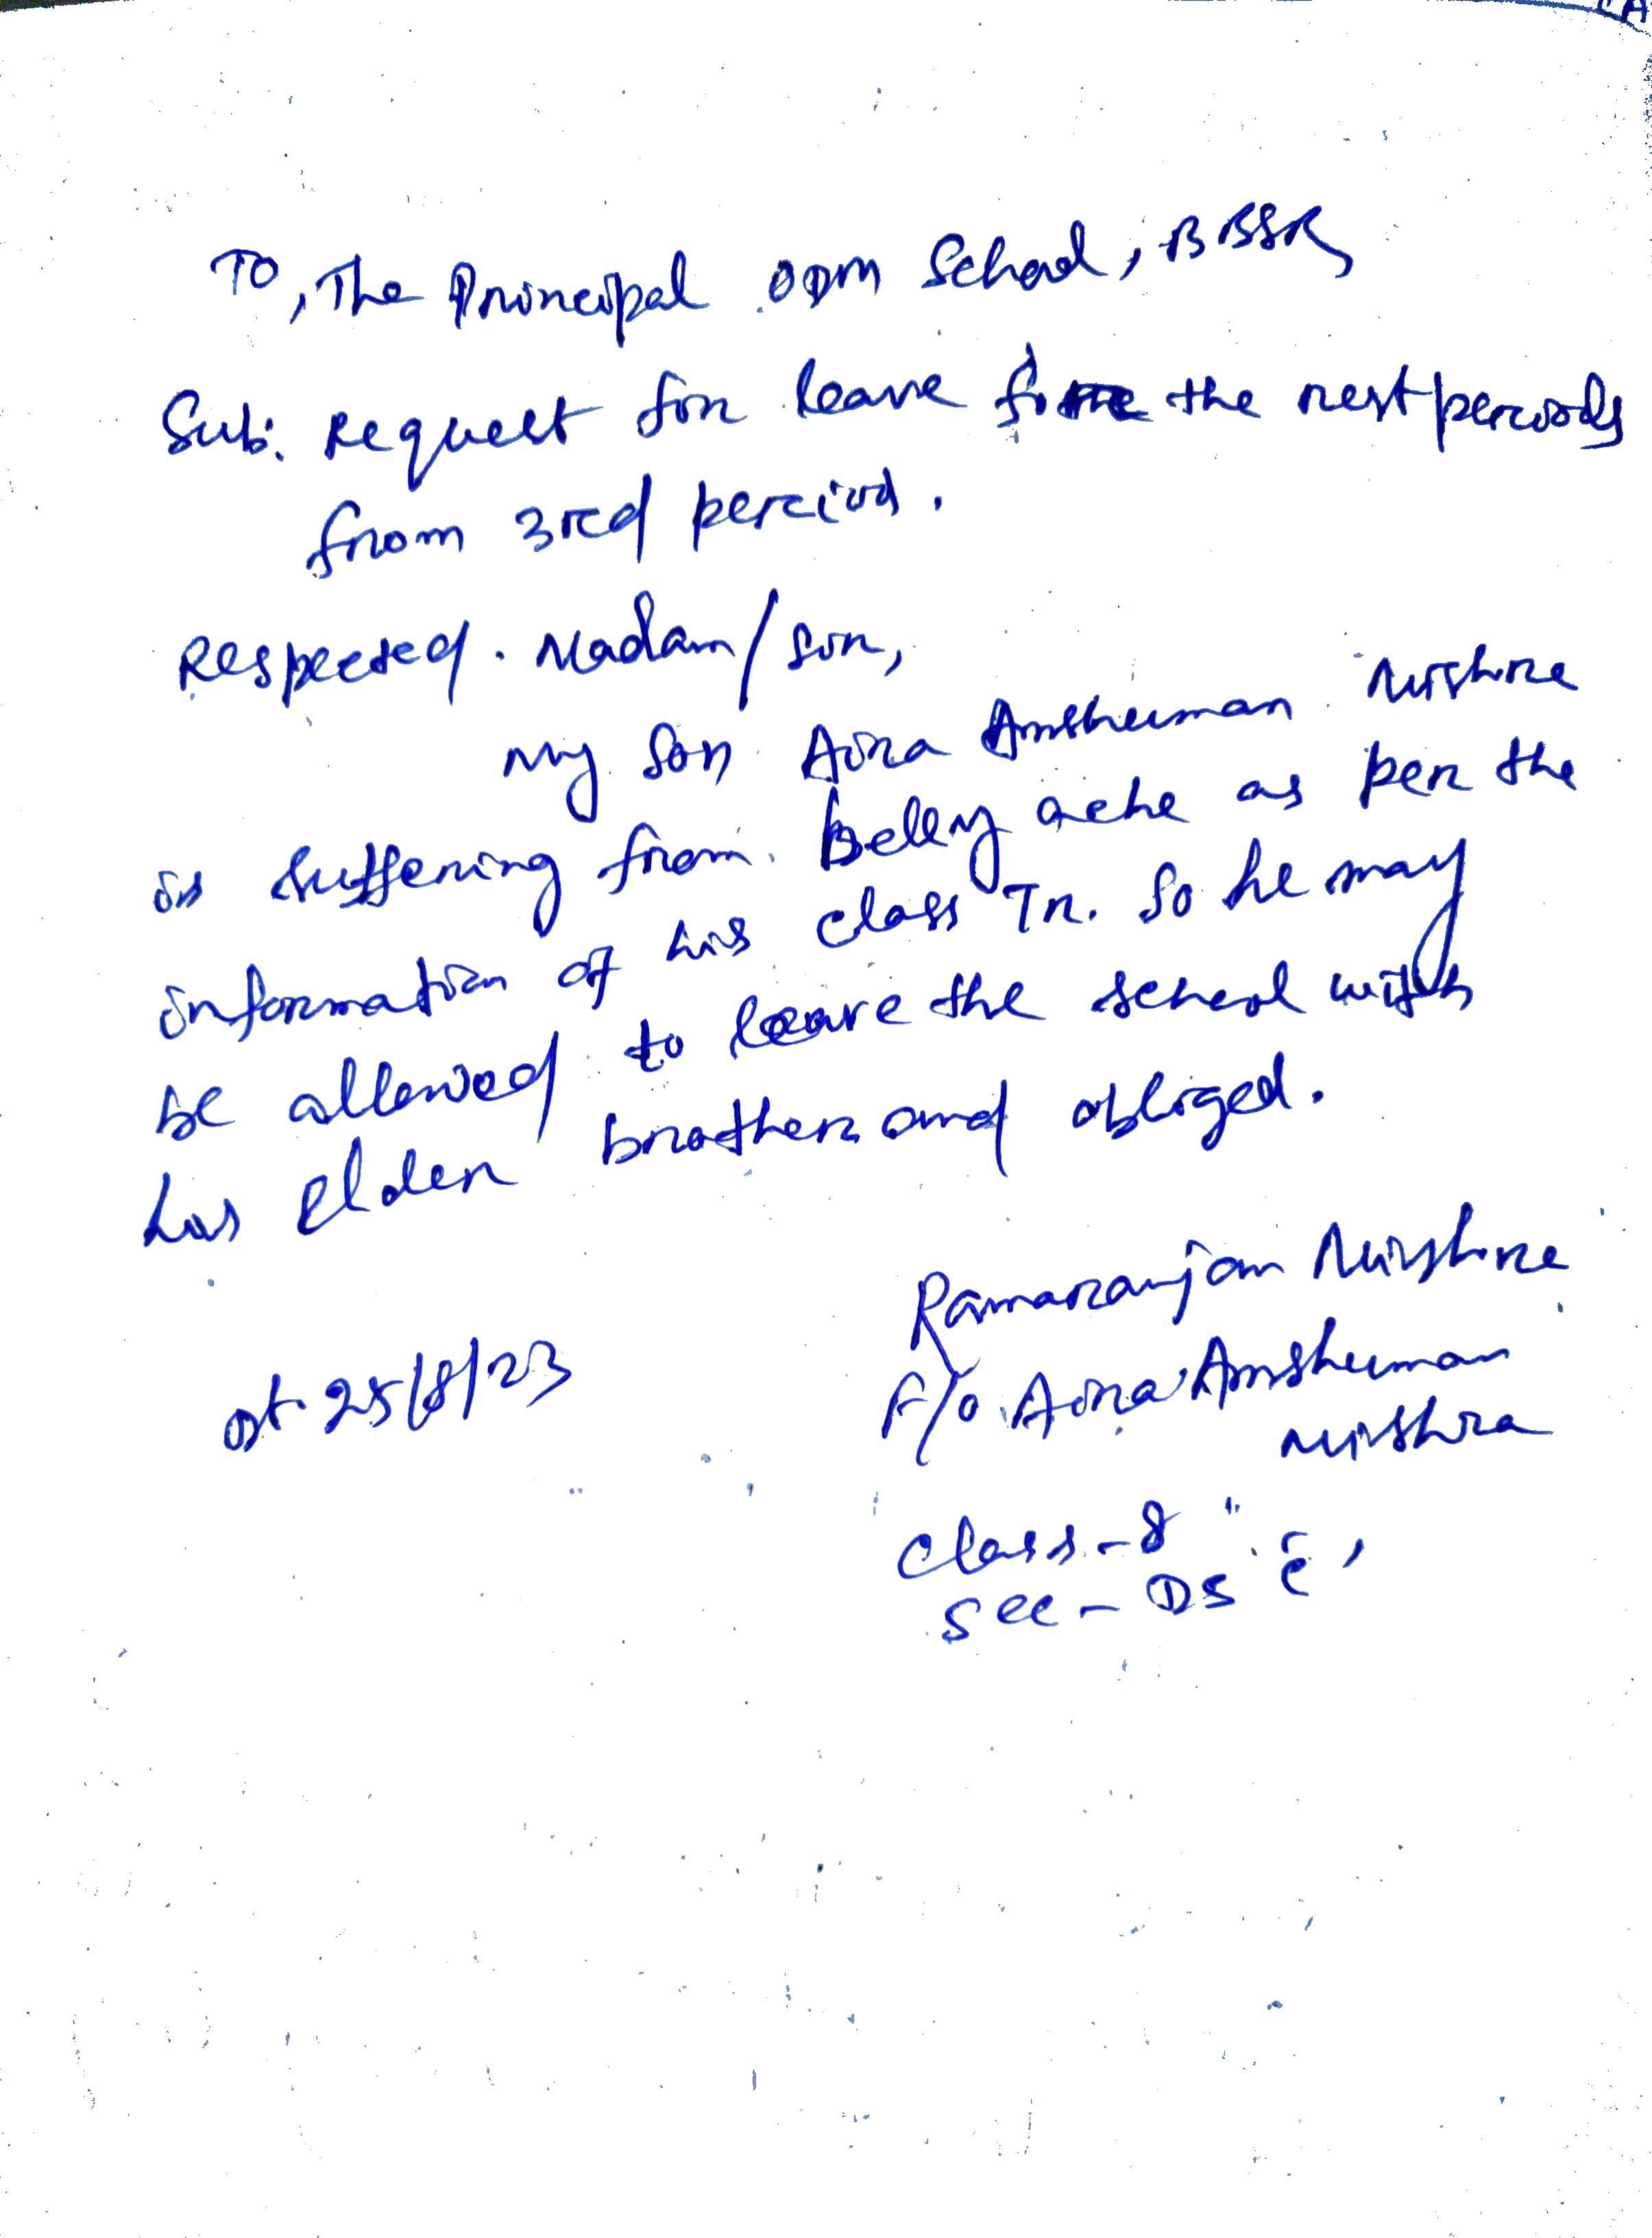 To, The Principal ODM School, BBSR
Sub: Request for leave for the rest periods
from 3rd period.
Respected Madam/Sir,
My Son Aira Amshuman Mishra
is suffering from Belly ache as per the
information of his class Tr. So he may
be allowed to leave the school with
his elder brother and obliged.
Ramaranjan Mishra
Dt. 25/8/23
F/o Aira Amshuman
Mishra
Class-8
Sec - DS "C"